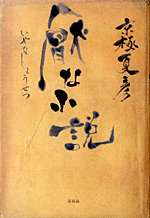 京極夏彦
厭な小説
いやなしょうせつ
祥伝社